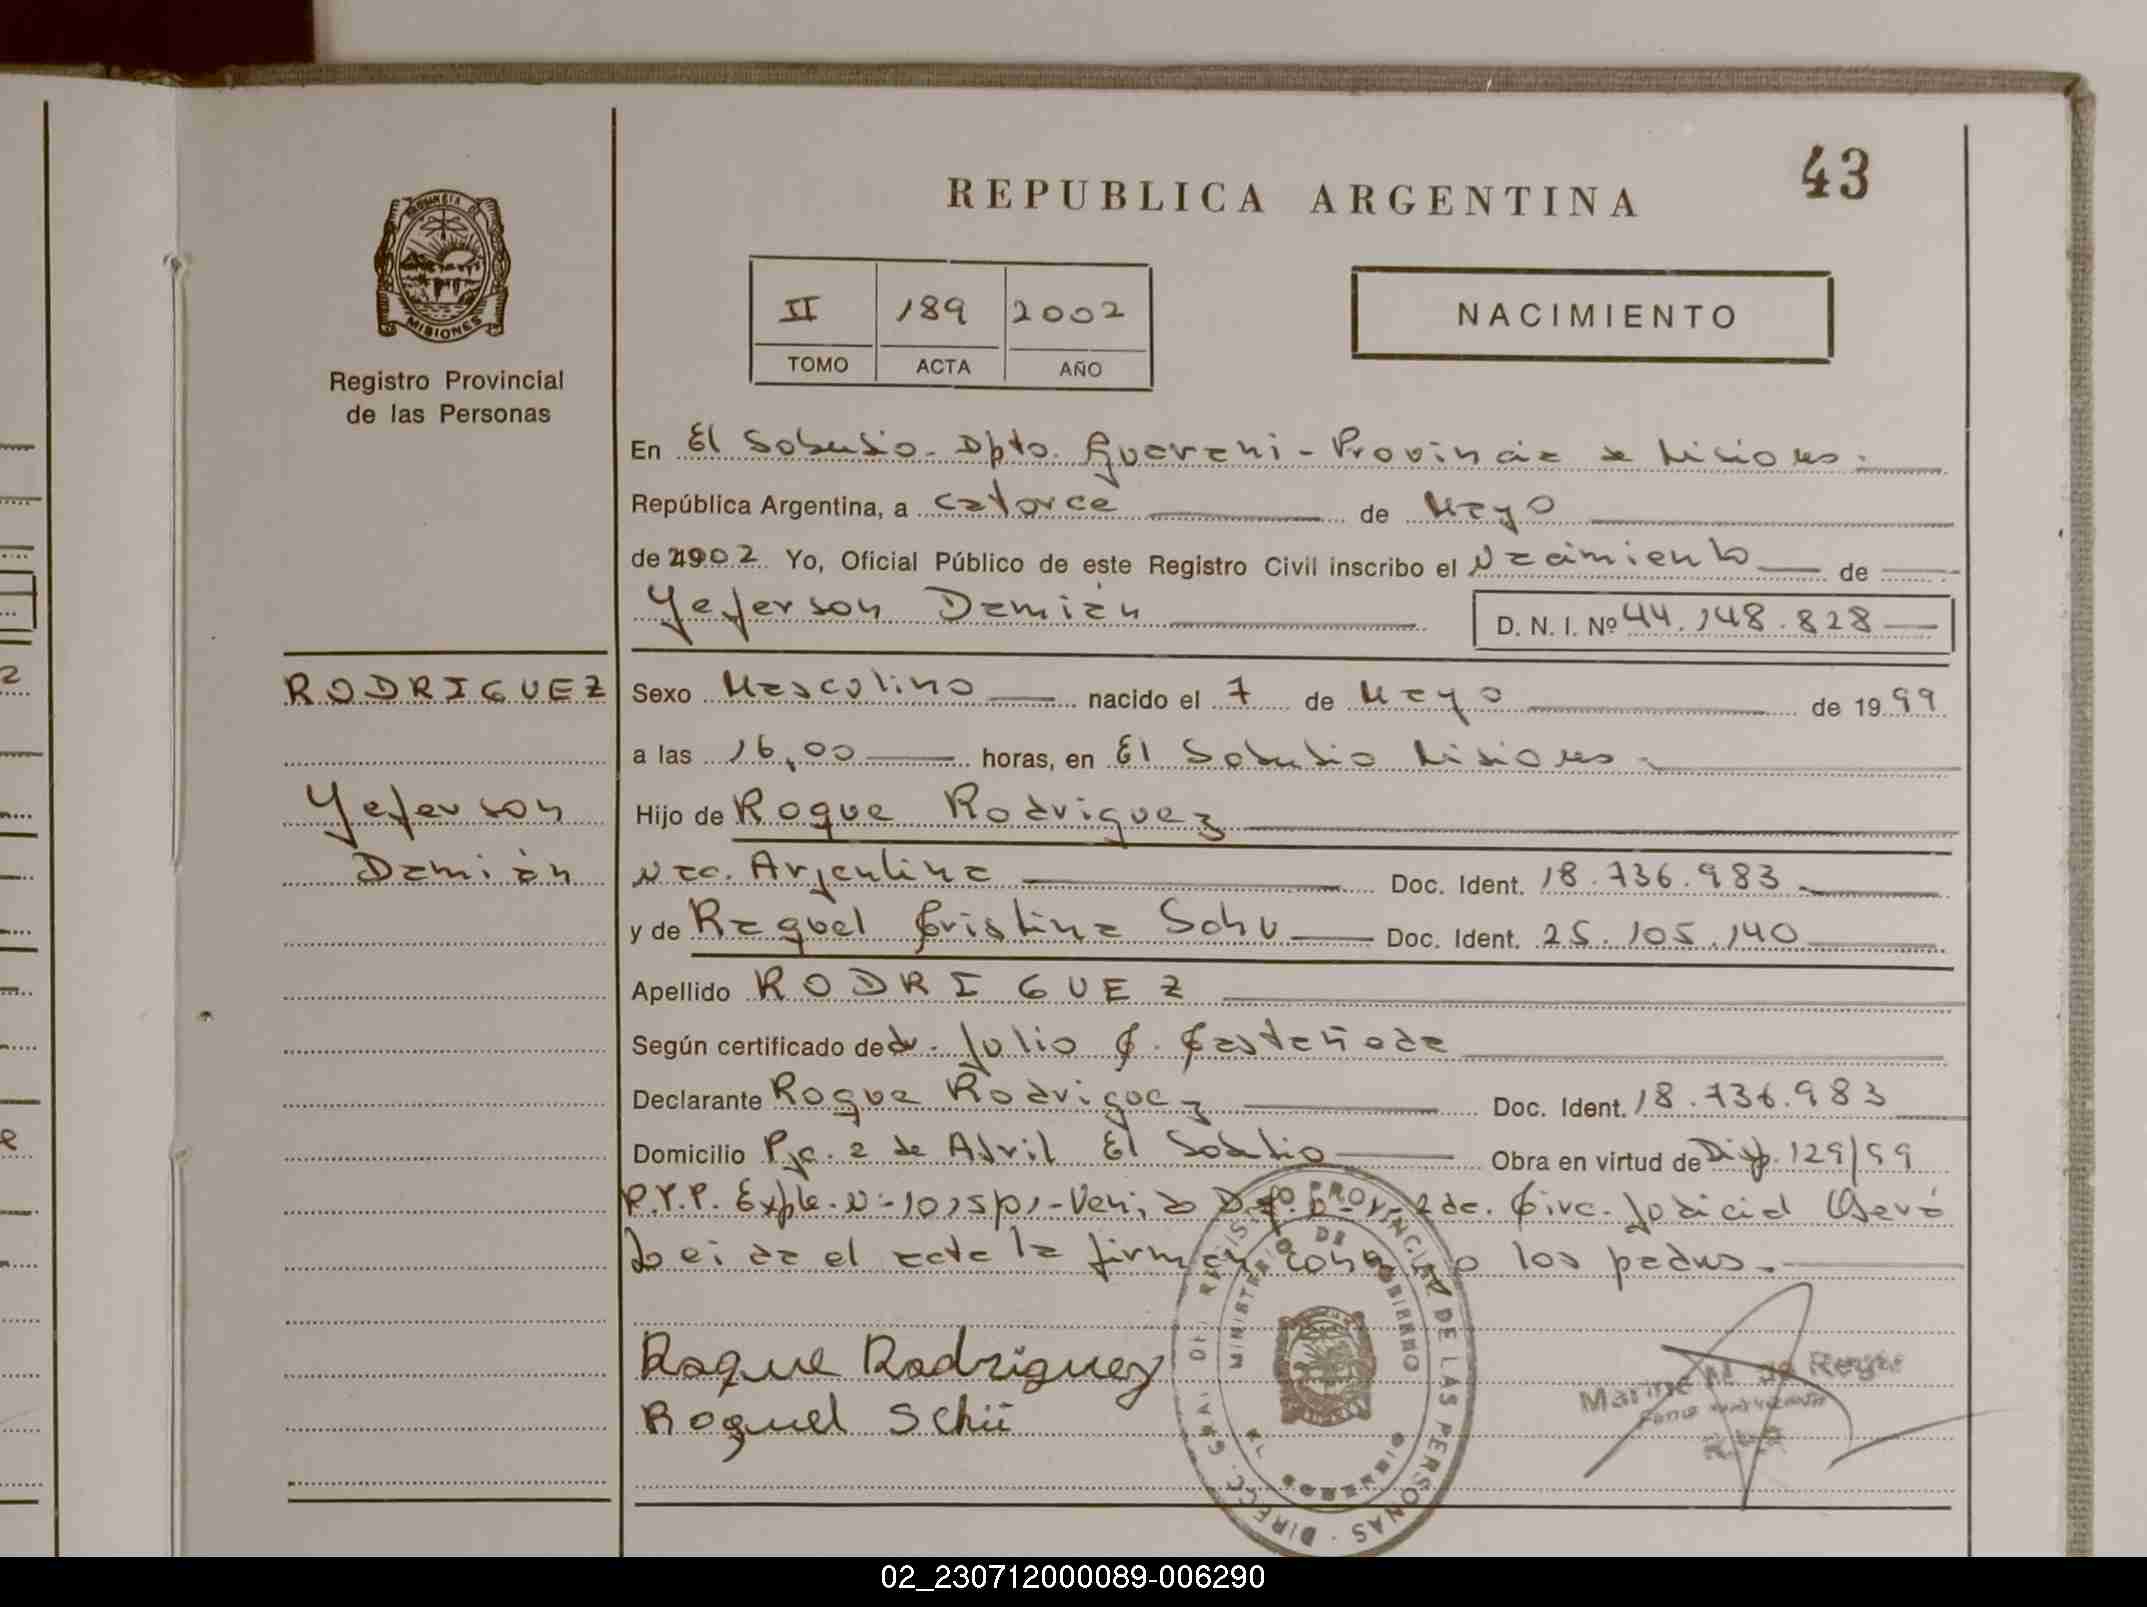 43
REPUBLICA ARGENTINA
II 189 2002
TOMO ACTA AÑO
NACIMIENTO
MISIONES
Registro Provincial
de las Personas
En El Soberbio - Dpto. Guarani - Provincia de Misiones.
República Argentina, a catorce de Mayo
de 2002 Yo, Oficial Público de este Registro Civil inscribo el Nacimiento de
Yeferson Damián D. N. I. Nº 44.148.828
RODRIGUEZ
Yeferson
Damián
Sexo Masculino nacido el 7 de Mayo de 1999
a las 16,00 horas, en El Soberbio Misiones
Hijo de Roque Rodriguez
Nac. Argentina Doc. Ident. 18.736.983
y de Raquel Cristina Schu Doc. Ident. 25.105.140
Apellido RODRIGUEZ
Según certificado de dr. Julio C. Castañeda
Declarante Roque Rodriguez Doc. Ident. 18.736.983
Domicilio Pje. 2 de Abril El Soberbio Obra en virtud de Disp. 129/99
R.P.P. Expte. Nº 2da. Circ. Judicial Oberá
Leida el acta la firman conmigo los padres.
Roque Rodriguez
Roquel Schü
DIRECC. GRAL. DEL REGISTRO PROVINCIAL DE LAS PERSONAS
MINISTERIO DE GOBIERNO
EL SOBERBIO
02_230712000089-006290